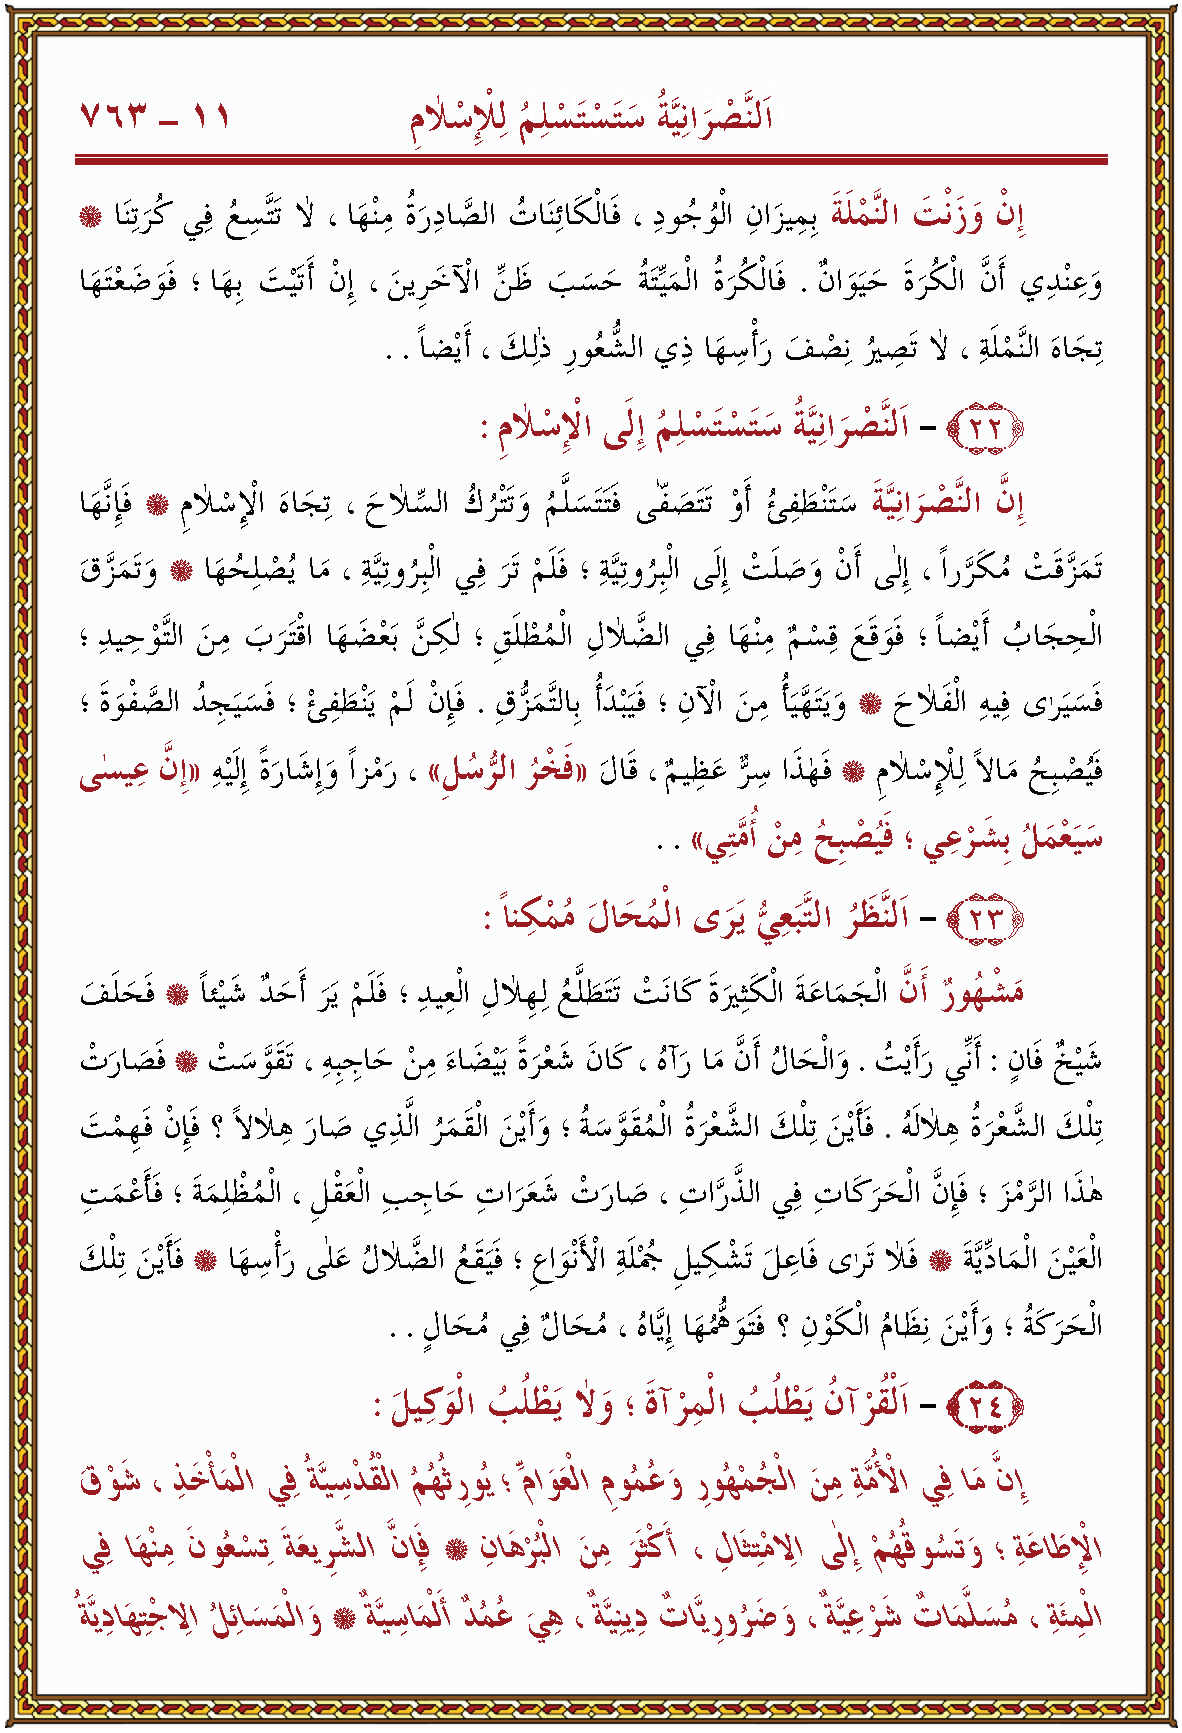 اَلنَّصْرَانِيَّةُ سَتَسْتَسْلِمُ لِلْإِسْلاٰمِ ١١ – ٧٦٣
إِنْ وَزَنْتَ النَّمْلَةَ بِمِيزَانِ الْوُجُودِ ، فَالْكَائِنَاتُ الصَّادِرَةُ مِنْهَا ، لاٰ تَتَّسِعُ فِي كُرَتِنَا ۞
وَعِنْدِي أَنَّ الْكُرَةَ حَيَوَانٌ . فَالْكُرَةُ الْمَيِّتَةُ حَسَبَ ظَنِّ الْآخَرِينَ ، إِنْ أَتَيْتَ بِهَا ؛ فَوَضَعْتَهَا
تِجَاهَ النَّمْلَةِ ، لاٰ تَصِيرُ نِصْفَ رَأْسِهَا ذِي الشُّعُورِ ذٰلِكَ ، أَيْضاً . .
﴿٢٢﴾ – اَلنَّصْرَانِيَّةُ سَتَسْتَسْلِمُ إِلَى الْإِسْلاٰمِ :
إِنَّ النَّصْرَانِيَّةَ سَتَنْطَفِئُ أَوْ تَتَصَفّٰى فَتَتَسَلَّمُ وَتَتْرُكُ السِّلاٰحَ ، تِجَاهَ الْإِسْلاٰمِ ۞ فَإِنَّهَا
تَمَزَّقَتْ مُكَرَّراً ، إِلٰى أَنْ وَصَلَتْ إِلَى الْبِرُوتِيَّةِ ؛ فَلَمْ تَرَ فِي الْبِرُوتِيَّةِ ، مَا يُصْلِحُهَا ۞ وَتَمَزَّقَ
الْحِجَابُ أَيْضاً ؛ فَوَقَعَ قِسْمٌ مِنْهَا فِي الضَّلاٰلِ الْمُطْلَقِ ؛ لٰكِنَّ بَعْضَهَا اقْتَرَبَ مِنَ التَّوْحِيدِ ؛
فَسَيَرٰى فِيهِ الْفَلاٰحَ ۞ وَيَتَهَيَّأُ مِنَ الْآنِ ؛ فَيَبْدَأُ بِالتَّمَزُّقِ . فَإِنْ لَمْ يَنْطَفِئْ ؛ فَسَيَجِدُ الصَّفْوَةَ ؛
فَيُصْبِحُ مَالاً لِلْإِسْلاٰمِ ۞ فَهٰذَا سِرٌّ عَظِيمٌ ، قَالَ «فَخْرُ الرُّسُلِ» ، رَمْزاً وَإِشَارَةً إِلَيْهِ «إِنَّ عِيسٰى
سَيَعْمَلُ بِشَرْعِي ؛ فَيُصْبِحُ مِنْ أُمَّتِي» . .
﴿٢٣﴾ – اَلنَّظَرُ التَّبَعِيُّ يَرَى الْمُحَالَ مُمْكِناً :
مَشْهُورٌ أَنَّ الْجَمَاعَةَ الْكَثِيرَةَ كَانَتْ تَتَطَلَّعُ لِهِلاٰلِ الْعِيدِ ؛ فَلَمْ يَرَ أَحَدٌ شَيْئاً ۞ فَحَلَفَ
شَيْخٌ فَانٍ : أَنِّي رَأَيْتُ . وَالْحَالُ أَنَّ مَا رَآهُ ، كَانَ شَعْرَةً بَيْضَاءَ مِنْ حَاجِبِهِ ، تَقَوَّسَتْ ۞ فَصَارَتْ
تِلْكَ الشَّعْرَةُ هِلاٰلَهُ . فَأَيْنَ تِلْكَ الشَّعْرَةُ الْمُقَوَّسَةُ ؛ وَأَيْنَ الْقَمَرُ الَّذِي صَارَ هِلاٰلاً ؟ فَإِنْ فَهِمْتَ
هٰذَا الرَّمْزَ ؛ فَإِنَّ الْحَرَكَاتِ فِي الذَّرَّاتِ ، صَارَتْ شَعَرَاتِ حَاجِبِ الْعَقْلِ ، الْمُظْلِمَةَ ؛ فَأَعْمَتِ
الْعَيْنَ الْمَادِّيَّةَ ۞ فَلاٰ تَرٰى فَاعِلَ تَشْكِيلِ جُمْلَةِ الْأَنْوَاعِ ؛ فَيَقَعُ الضَّلاٰلُ عَلٰى رَأْسِهَا ۞ فَأَيْنَ تِلْكَ
الْحَرَكَةُ ؛ وَأَيْنَ نِظَامُ الْكَوْنِ ؟ فَتَوَهُّمُهَا إِيَّاهُ ، مُحَالٌ فِي مُحَالٍ . .
﴿٢٤﴾ – اَلْقُرْآنُ يَطْلُبُ الْمِرْآةَ ؛ وَلاٰ يَطْلُبُ الْوَكِيلَ :
إِنَّ مَا فِي الْأُمَّةِ مِنَ الْجُمْهُورِ وَعُمُومِ الْعَوَامِّ ؛ يُورِثُهُمُ الْقُدْسِيَّةُ فِي الْمَأْخَذِ ، شَوْقَ
الْإِطَاعَةِ ؛ وَتَسُوقُهُمْ إِلٰى الِامْتِثَالِ ، أَكْثَرَ مِنَ الْبُرْهَانِ ۞ فَإِنَّ الشَّرِيعَةَ تِسْعُونَ مِنْهَا فِي
الْمِئَةِ ، مُسَلَّمَاتٌ شَرْعِيَّةٌ ، وَضَرُورِيَّاتٌ دِينِيَّةٌ ، هِيَ عُمُدٌ أَلْمَاسِيَّةٌ ۞ وَالْمَسَائِلُ الِاجْتِهَادِيَّةُ